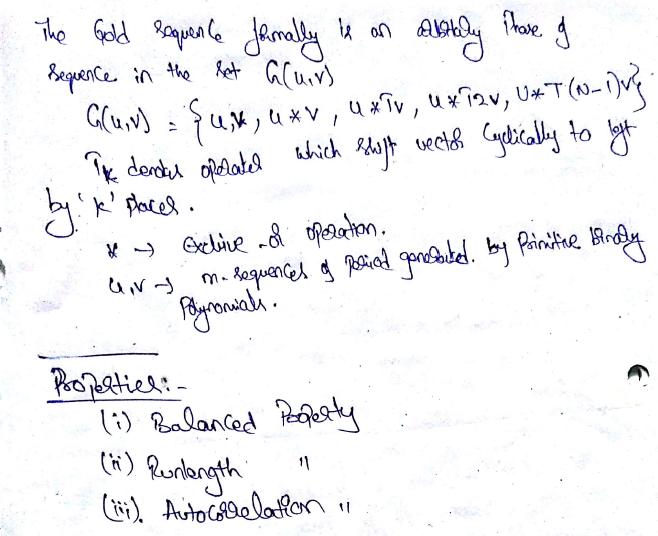 The Gold sequence formally is an arbitrary Phase of
Sequence in the set G(u,v)
G(u,v) = {u,v, u*v, u*Tv, u*T2v, U*T(N-1)v}
Tk denotes operator which shift vector Cyclically to left
by 'k' places.
* → Exclusive -or operation.
u,v → m-sequences of period generated. by Primitive Binary
Polynomials.
Properties:-
(i) Balanced Property
(ii) Runlength "
(iii). Autocorrelation "